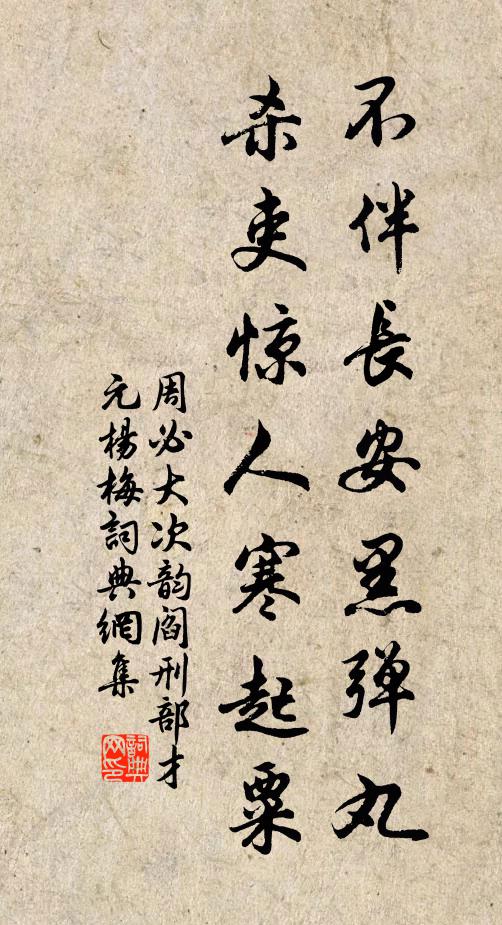 不伴長安黑弹丸
杀吏惊人寒起粟
周必大次韵阎刑部才
元楊梅詞典網集
詞典
网印